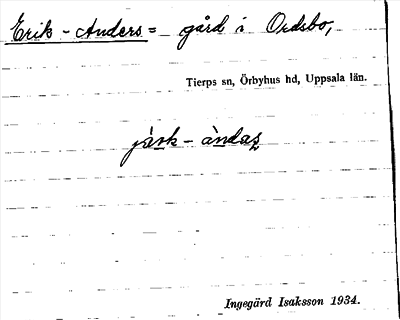 Erik-Anders= gård i Ordsbo,
Tierps sn, Örbyhus hd, Uppsala län.
Ingegärd Isaksson 1934.